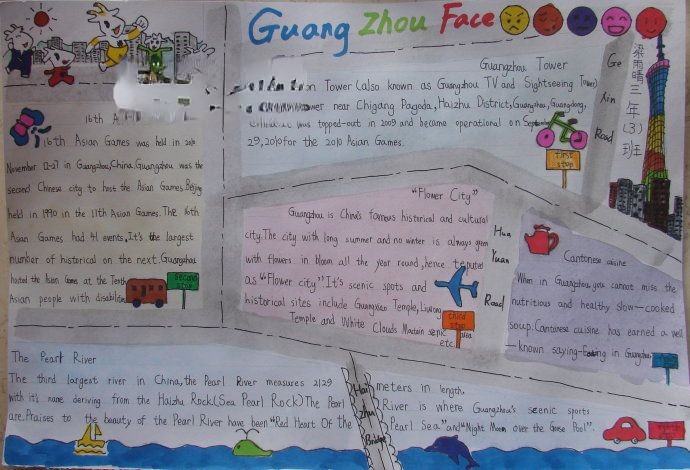 Guang Zhou Face
Guangzhou Tower
Tower (also known as Guangzhou TV and Sightseeing Tower)
near Chigang Pagoda, Haizhu District, Guangzhou, Guangdong,
was topped-out in 2009 and became operational on September
29, 2010 for the 2010 Asian Games.
first stop
Ge Xin Road
梁雨晴三年(3)班
16th A
16th Asian Games was held in 2010
November 12-27 in Guangzhou, China. Guangzhou was the
second Chinese city to host the Asian Games. Beijing
held in 1990 in the 11th Asian Games. The 16th
Asian Games had 41 events, It's the largest
number of historical on the next. Guangzhou
hosted the Asian Games at the Tenth
Asian people with disabilities
second stop
"Flower City"
Guangzhou is China's famous historical and cultural
city. The city with long summer and no winter is always green
with flowers in bloom all the year round, hence reputed
as "Flower city". It's scenic spots and
historical sites include Guangxiao Temple, Liurong
Temple and White Clouds Mountain scenic area
etc.
third stop
Hua Yuan Road
Cantonese cuisine
When in Guangzhou, you cannot miss the
nutritious and healthy slow-cooked
soup. Cantonese cuisine has earned a well
-known saying-Eating in Guangzhou
The Pearl River
The third largest river in China, the Pearl River measures 2129 meters in length.
with it's name deriving from the Haizhu Rock (Sea Pearl Rock) The Pearl River is where Guangzhou's scenic sports
are. Praises to the beauty of the Pearl River have been "Red Heart Of the Pearl Sea" and "Night Moon over the Goose Pool".
Hai Zhu Bridge